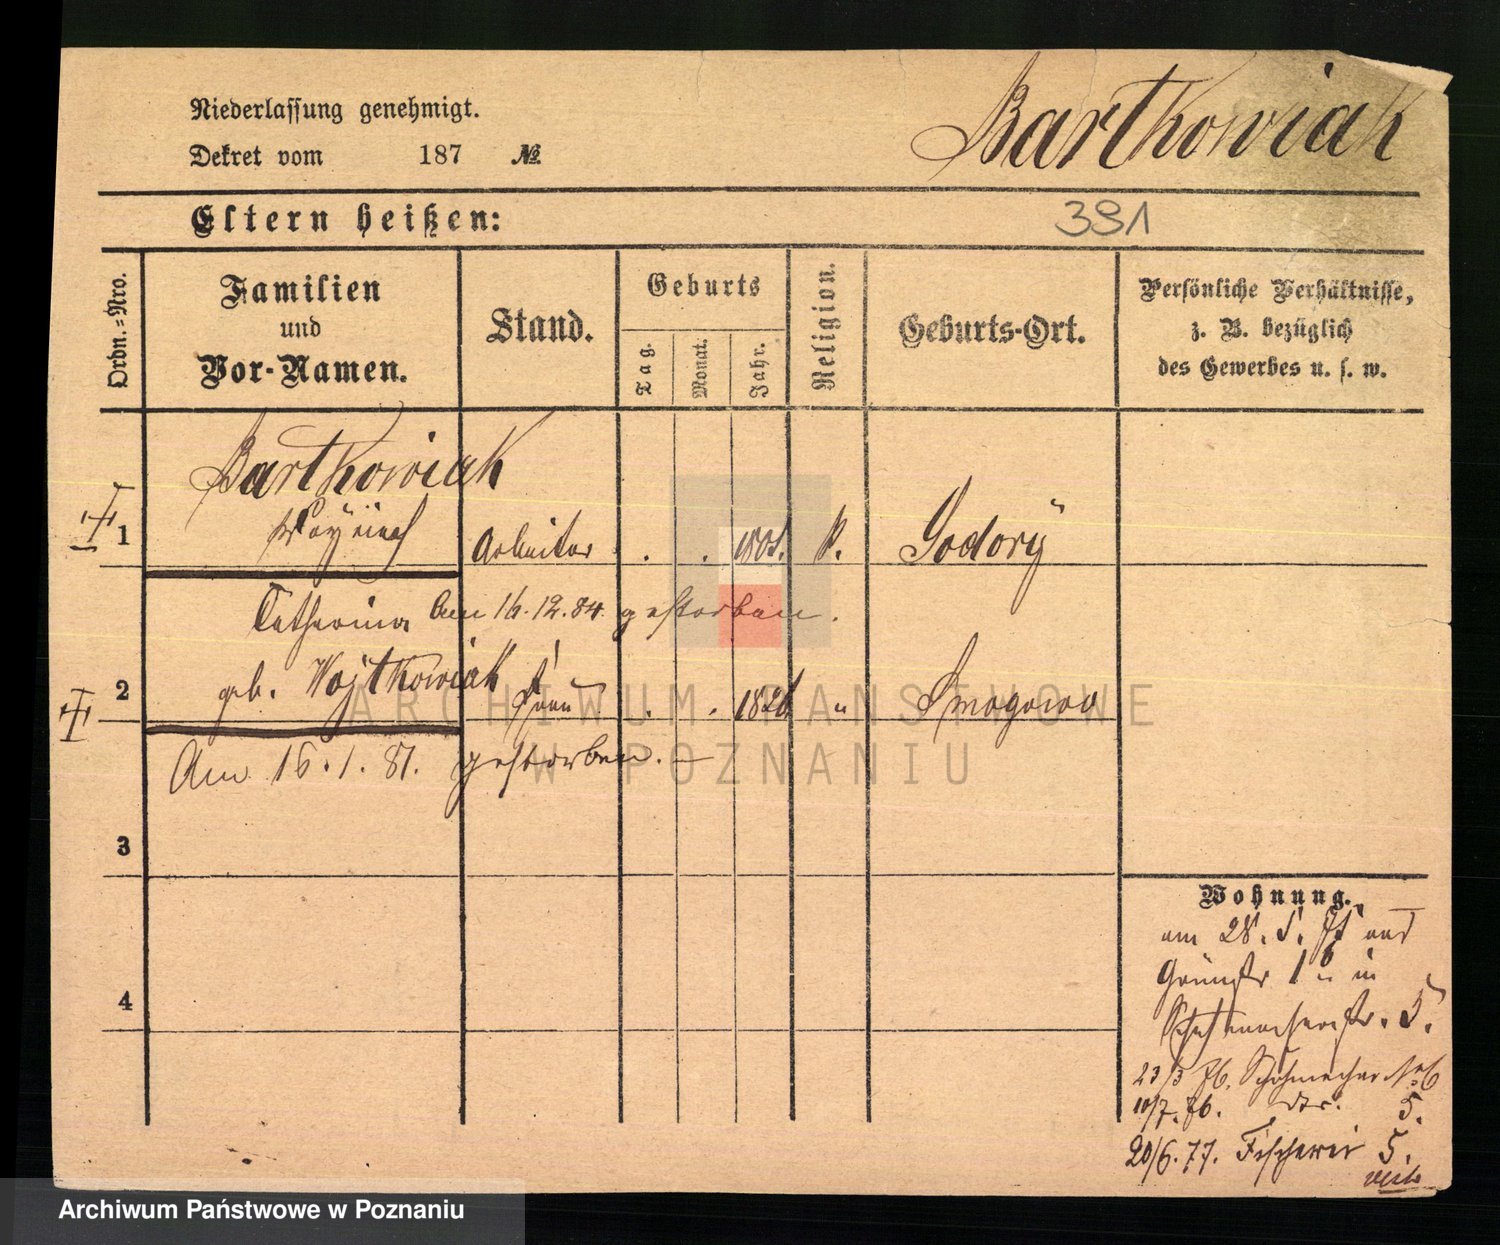 Niederlassung genehmigt.
Dekret vom 187 №
Bartkowiak
Eltern heißen:
391
Ordn.-Nro.
Familien
und
Vor-Namen.
Stand.
Geburts
Tag.
Monat.
Jahr.
Religion.
Geburts-Ort.
Persönliche Verhältnisse,
z. B. bezüglich
des Gewerbes u. s. w.
Bartkowiak
1 Arbeiter . . k.
Catharina Am 16.12.84. gestorben.
2 geb. Wojtkowiak Frau . . 1826 " Smogowo
Am 16.1.81. gestorben. —
3
4
Wohnung.
am 28.5.75 aus
Grünstr 1 u in
Schuhmacherstr. 5.
23/3 76. Schuhmacher No 6
10/7. 76. dto. 5.
20/6. 77. Fischerei 5.
ARCHIWUM PAŃSTWOWE
W POZNANIU
Archiwum Państwowe w Poznaniu